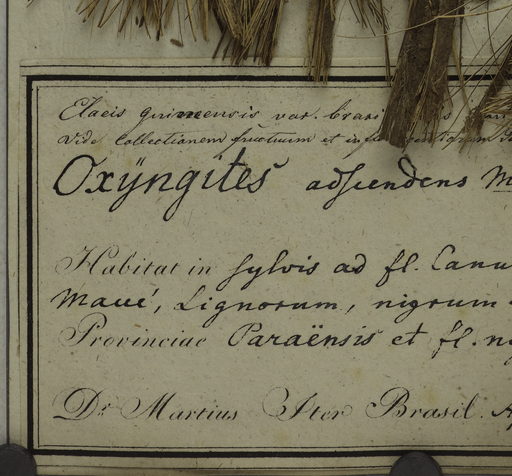 Elaeis guineensis var. brasi
Vide Collectionem fructuum et infl
Oxÿngites adscendens M
Habitat in sylvis ad fl. Canu
Maué, Lignorum, nigrum
Provinciae Paraënsis et fl. n
Dr Martius Iter Brasil. A